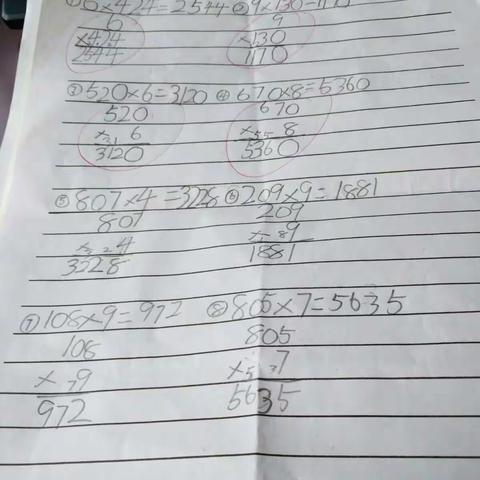 ①6×424=2544 ②9×130=1170
6 9
×424 ×130
2544 1170
③520×6=3120 ④670×8=5360
520 670
×31 6 ×55 8
3120 5360
⑤807×4=3228 ⑥209×9=1881
807 209
×3 2 4 ×1 8 9
3228 1881
⑦108×9=972 ⑧805×7=5635
108 805
×79 ×5 37
972 5635